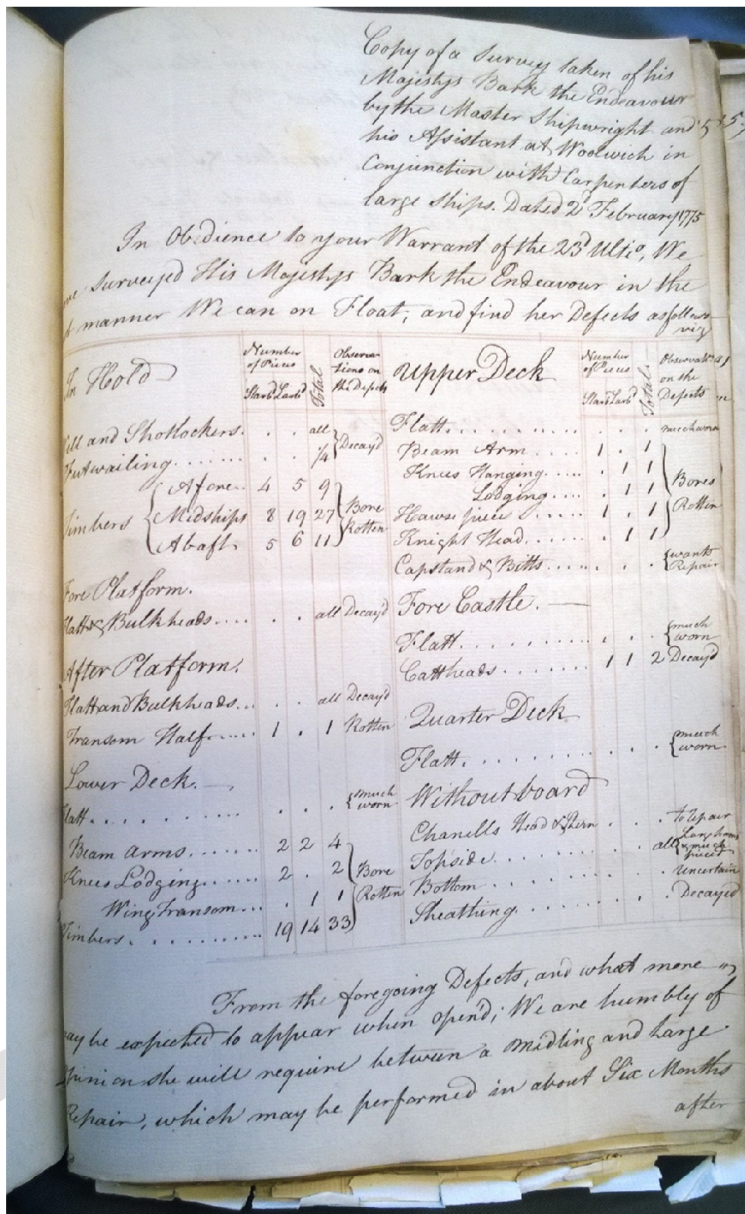 Copy of a Survey taken of his
Majestys Bark the Endeavour
by the Master Shipwright and
his Assistant at Woolwich in
Conjunction with Carpenters of
large Ships. Dated 2d February 1775
In Obedience to your Warrant of the 23d Ultio, We
Surveyed His Majestys Bark the Endeavour in the
manner We can on Float, and find her Defects as follows
viz
In Hold
Number of Pieces Starbd Larbd Total Observations on the Defects
and Shotlockers . . all
Futwailing . . 1/4 } Decayd
Timbers { Afore 4 5 9
Midships 8 19 27 } Bore Rotten
Abaft 5 6 11
Fore Platform.
Flatt & Bulkheads . . all Decayd
After Platform.
Flatt and Bulkheads . . all Decayd
Transom Half 1 . 1 Rotten
Lower Deck.
Flatt . . . { much worn
Beam Arms 2 2 4
Knees Lodging 2 . 2 } Bore Rotten
Wing Transom . 1 1
Timbers 19 14 33
Upper Deck
Number of Pieces Starbd Larbd Total Observatns on the Defects
Flatt . . . much worn
Beam Arm 1 . 1
Knees Hanging . 1 1
Lodging . 1 1 } Bore & Rotten
Hawse piece 1 . 1
Knight Head . 1 1
Capstand & Bitts . . . { wants Repair
Fore Castle.
Flatt . . . { much worn
Cattheads 1 1 2 Decayd
Quarter Deck
Flatt . . . { much worn
Without board
Chanells Head & Stern . . . to repair
Topside . . all { much pieced
Bottom . . . uncertain
Sheathing . . . Decayed
From the foregoing Defects, and what more
may be expected to appear when open'd; We are humbly of
Opinion she will require between a Midling and Large
Repair, which may be performed in about Six Months
after